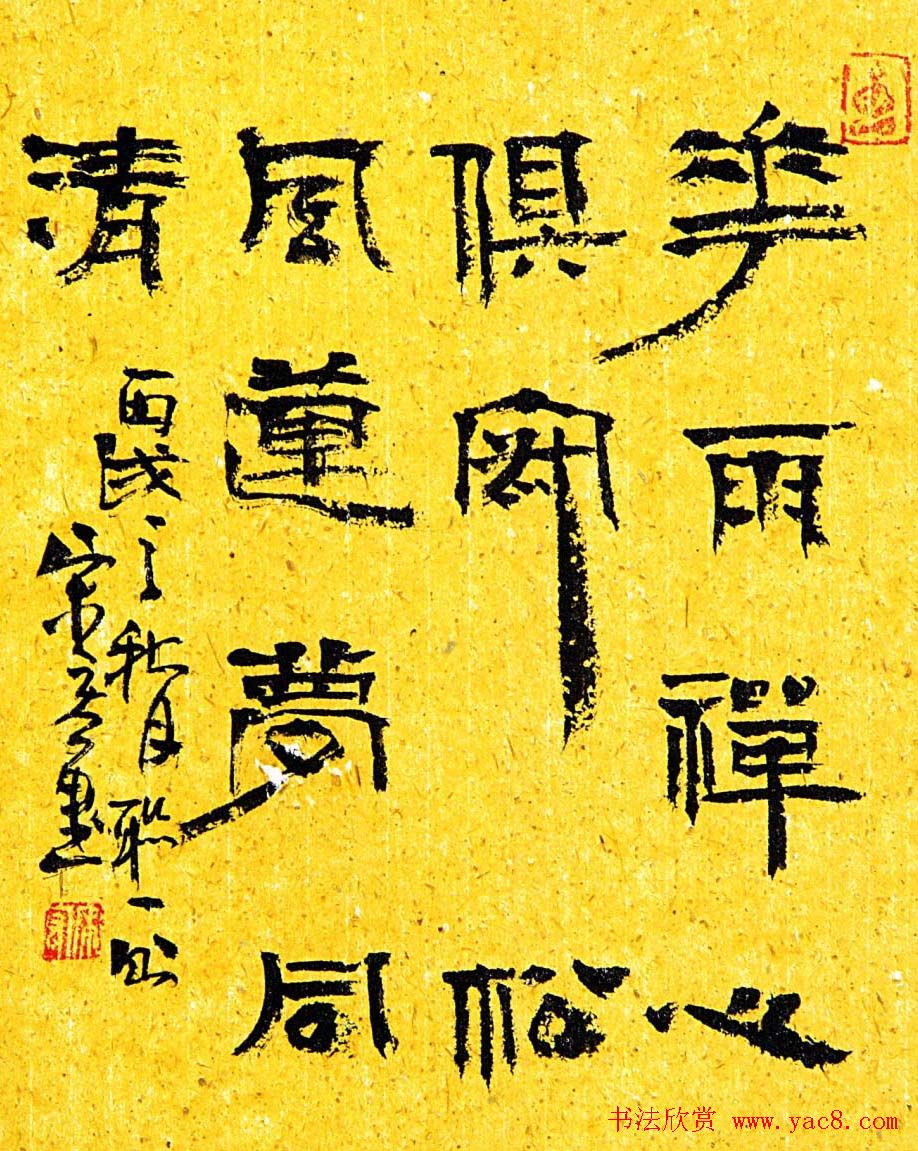 華雨禪心
俱寂松
風蓮夢同
清
丙戌之秋月聯一書
書法欣赏 www.yac8.com